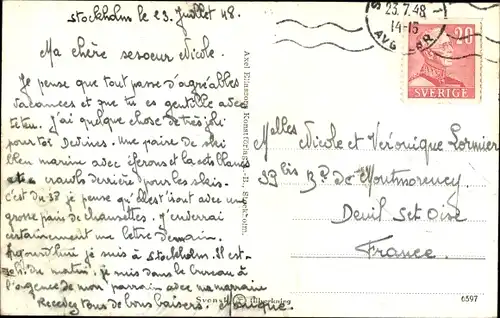 Stockholm le 23 Juillet 48.
Ma chère soeur Nicole.
Je pense que tout passe d'agréables
vacances et que tu es gentille avec
J'ai quelque chose de très joli
pour toi Devines. Une paire de ski
bleu marine avec et lacets blancs
et derrière pour les skis.
c'est du 38 je pense qu'elles t'iront avec une
grosse paire de chaussettes. J'enverrai
certainement une lettre demain.
Aujourd'hui je suis à Stockholm. Il est
du matin, je suis dans le bureau à
l'agence de mon parrain avec ma marraine
Recevez tous de bons baisers. Monique.
Axel Eliassons Konstförlag, Stockholm.
23.7.48
14-15
AVG
20
SVERIGE
Melles Nicole et Véronique Lormier
39 bis Bd de Montmorency
Deuil Set Oise
France.
6597